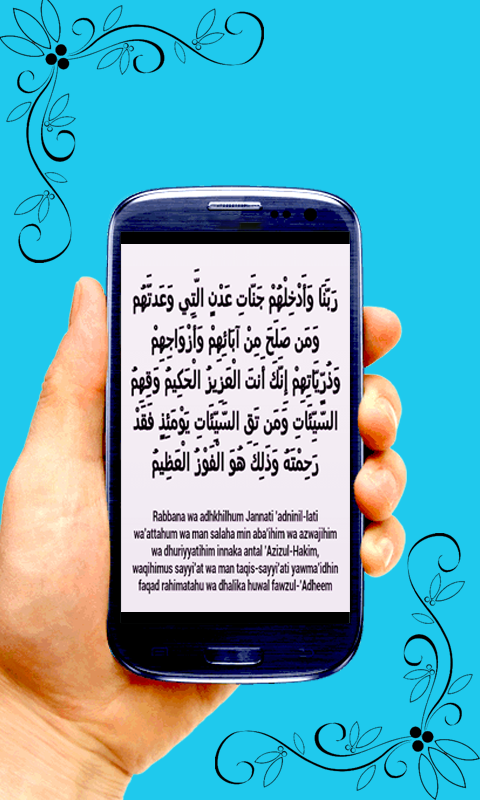 رَبَّنَا وَأَدْخِلْهُمْ جَنَّاتِ عَدْنٍ الَّتِي وَعَدتَّهُم
وَمَن صَلَحَ مِنْ آبَائِهِمْ وَأَزْوَاجِهِمْ
وَذُرِّيَّاتِهِمْ إِنَّكَ أَنتَ الْعَزِيزُ الْحَكِيمُ وَقِهِمُ
السَّيِّئَاتِ وَمَن تَقِ السَّيِّئَاتِ يَوْمَئِذٍ فَقَدْ
رَحِمْتَهُ وَذَلِكَ هُوَ الْفَوْزُ الْعَظِيمُ
Rabbana wa adhkhilhum Jannati 'adninil-lati
wa'attahum wa man salaha min aba'ihim wa azwajihim
wa dhuriyyatihim innaka antal 'Azizul-Hakim,
waqihimus sayyi'at wa man taqis-sayyi'ati yawma'idhin
faqad rahimatahu wa dhalika huwal fawzul-'Adheem